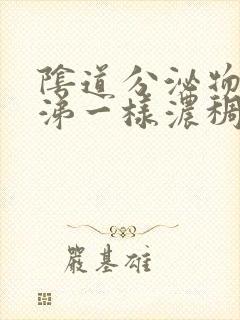 陰道分泌物
涕一樣濃稠
嚴基雄